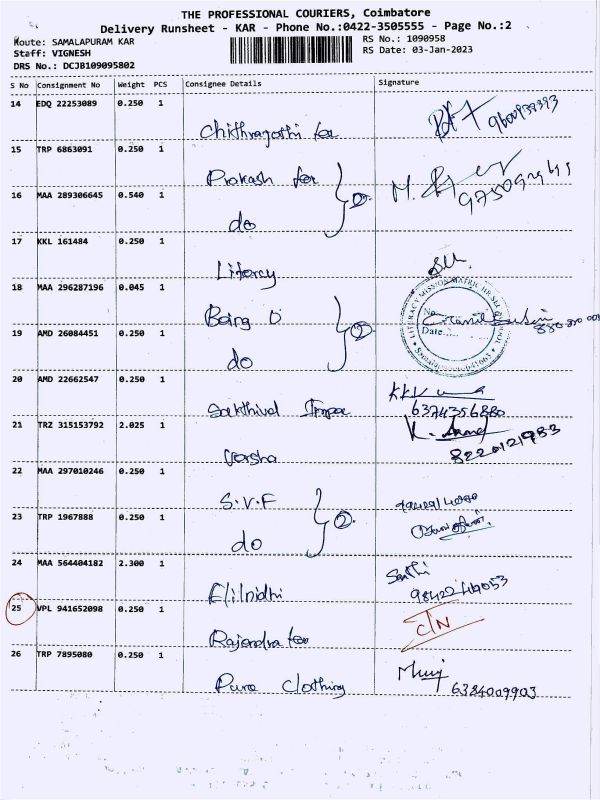 THE PROFESSIONAL COURIERS, Coimbatore
Delivery Runsheet - KAR - Phone No.:0422-3505555 - Page No.:2
Route: SAMALAPURAM KAR
RS No.: 1090958
Staff: VIGNESH
RS Date: 03-Jan-2023
DRS No.: DCJB109095802
S No Consignment No Weight PCS Consignee Details Signature
14 EDQ 22253089 0.250 1
15 TRP 6863091 0.250 1
Prakash
16 MAA 289306645 0.540 1
do
17 KKL 161484 0.250 1
Literacy
18 MAA 296287196 0.045 1
Being
LITERACY MISSION MATRIC HR SEC SCHOOL
No
Date
641663
19 AMD 26084451 0.250 1
do
20 AMD 22662547 0.250 1
Sakthivel Impex
6374356880
21 TRZ 315153792 2.025 1
Varsha
8220121983
22 MAA 297010246 0.250 1
S.V.F
23 TRP 1967888 0.250 1
do
24 MAA 564404182 2.300 1
Elilnidhi
25 VPL 941652098 0.250 1
Rajendra
C/N
26 TRP 7895080 0.250 1
Pure Clothing
6384009903